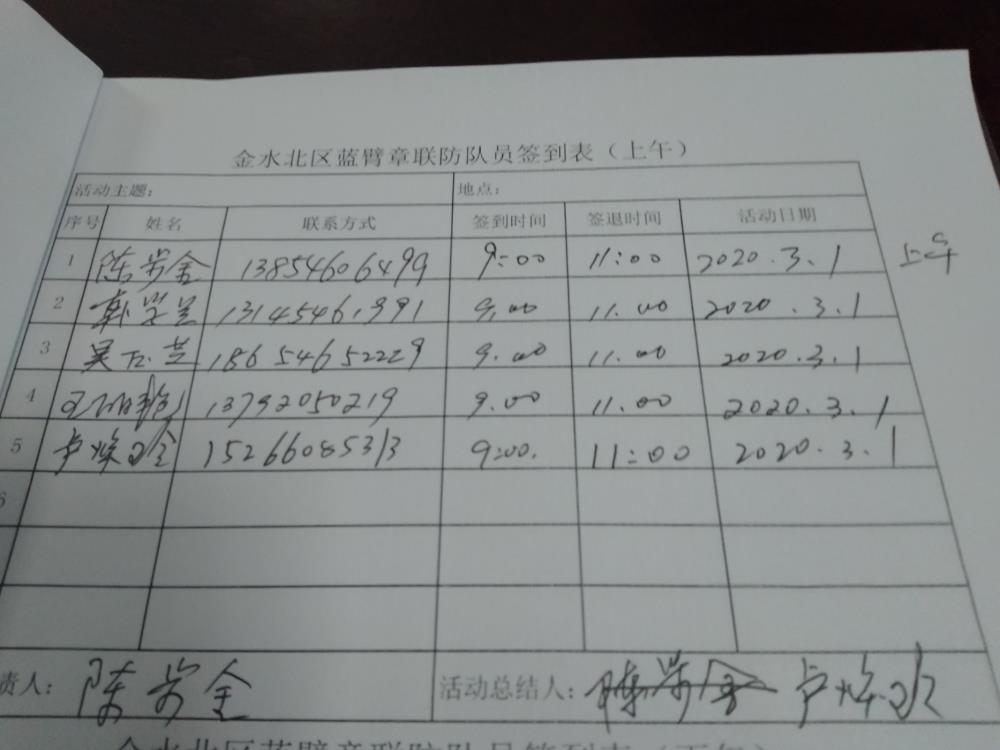 金水北区蓝臂章联防队员签到表（上午）
活动主题： 地点：
序号 姓名 联系方式 签到时间 签退时间 活动日期
1 陈岩金 13854606499 9:00 11:00 2020.3.1 上午
2 13145461991 9.00 11.00 2020.3.1
3 18654652229 9.00 11.00 2020.3.1
4 13792050219 9.00 11.00 2020.3.1
5 15266085313 9:00. 11:00 2020.3.1
6
责人： 陈岩金 活动总结人：
金水北区蓝臂章联防队员签到表（下午）